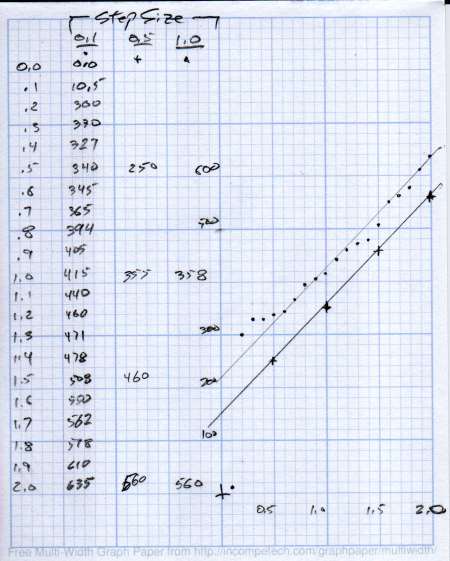 Step Size
0.1 0.5 1.0
0.0 0.0
.1 10.5
.2 300
.3 330
.4 327
.5 340 250 600
.6 345
.7 365 500
.8 394
.9 405
1.0 415 355 358
1.1 440
1.2 460
1.3 471 300
1.4 478
1.5 508 460 200
1.6 550
1.7 562 100
1.8 578
1.9 610
2.0 635 560 560
0.5 1.0 1.5 2.0
Free Multi-Width Graph Paper from http://incompetech.com/graphpaper/multiwidth/